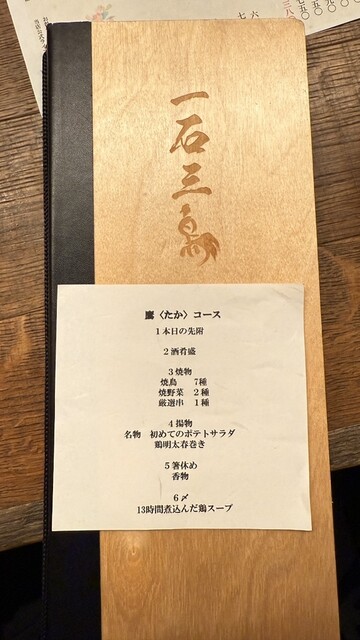 一石三鳥
鷹〈たか〉コース
1本日の先附
2酒肴盛
3焼物
焼鳥 7種
焼野菜 2種
厳選串 1種
4揚物
名物 初めてのポテトサラダ
鶏明太春巻き
5箸休め
香物
6〆
13時間煮込んだ鶏スープ